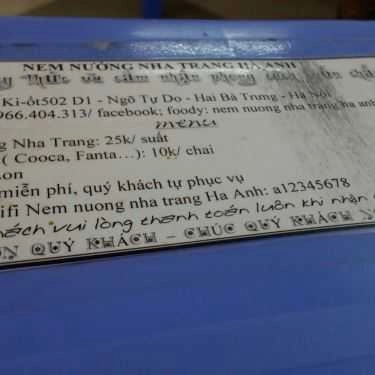 NEM NƯỚNG NHA TRANG HÀ ANH
Thức và cảm nhận phong cách
Ki-ốt502 D1 - Ngõ Tự Do - Hai Bà Trưng - Hà Nội
966.404.313/ facebook; foody: nem nuong nha trang hà anh
menu
Nha Trang: 25k/ suất
( Cooca, Fanta…): 10k/ chai
miễn phí, quý khách tự phục vụ
ifi Nem nuong nha trang Ha Anh: a12345678
khách vui lòng thanh toán luôn khi nhận
ƠN QUÝ KHÁCH – CHÚC QUÝ KHÁCH